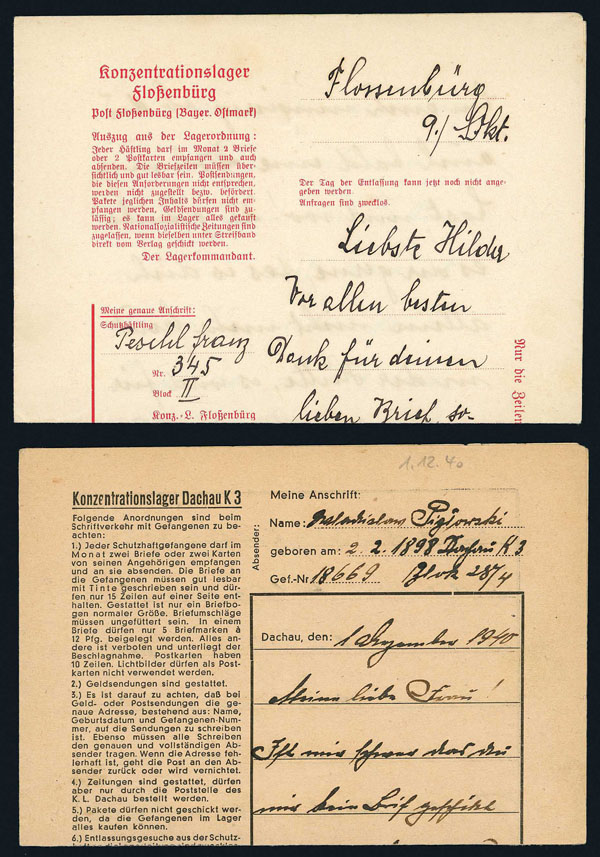 Konzentrationslager
Floßenbürg
Post Floßenbürg (Bayer. Ostmark)
Auszug aus der Lagerordnung:
Jeder Häftling darf im Monat 2 Briefe
oder 2 Postkarten empfangen und auch
absenden. Die Briefzeilen müssen über-
sichtlich und gut lesbar sein. Postsendungen,
die diesen Anforderungen nicht entsprechen,
werden nicht zugestellt bezw. befördert.
Pakete jeglichen Inhalts dürfen nicht em-
pfangen werden, Geldsendungen sind zu-
lässig; es kann im Lager alles gekauft
werden. Nationalsozialistische Zeitungen sind
zugelassen, wenn dieselben unter Streifband
direkt vom Verlag geschickt werden.
Der Lagerkommandant.
Meine genaue Anschrift:
Schutzhäftling
Peschl franz
Nr. 345
Block II
Konz.-L. Floßenbürg
Flossenbürg
9./ Okt.
Der Tag der Entlassung kann jetzt noch nicht ange-
geben werden.
Anfragen sind zwecklos.
Liebste Hilde
Vor allen besten
Dank für deinen
lieben Brief, so-
Nur die Zeilen
1.12.40
Konzentrationslager Dachau K 3
Folgende Anordnungen sind beim
Schriftverkehr mit Gefangenen zu be-
achten:
1.) Jeder Schutzhaftgefangene darf im
Monat zwei Briefe oder zwei Karten
von seinen Angehörigen empfangen
und an sie absenden. Die Briefe an
die Gefangenen müssen gut lesbar
mit Tinte geschrieben sein und dür-
fen nur 15 Zeilen auf einer Seite ent-
halten. Gestattet ist nur ein Briefbo-
gen normaler Größe. Briefumschläge
müssen ungefüttert sein. In einem
Briefe dürfen nur 5 Briefmarken à
12 Pfg. beigelegt werden. Alles an-
dere ist verboten und unterliegt der
Beschlagnahme. Postkarten haben
10 Zeilen. Lichtbilder dürfen als Post-
karten nicht verwendet werden.
2.) Geldsendungen sind gestattet.
3.) Es ist darauf zu achten, daß bei
Geld- oder Postsendungen die ge-
naue Adresse, bestehend aus: Name,
Geburtsdatum und Gefangenen-Num-
mer, auf die Sendungen zu schreiben
ist. Ebenso müssen alle Schreiben
den genauen und vollständigen Ab-
sender tragen. Wenn die Adresse feh-
lerhaft ist, geht die Post an den Ab-
sender zurück oder wird vernichtet.
4.) Zeitungen sind gestattet, dürfen
aber nur durch die Poststelle des
K. L. Dachau bestellt werden.
5.) Pakete dürfen nicht geschickt wer-
den, da die Gefangenen im Lager
alles kaufen können.
6.) Entlassungsgesuche aus der Schutz-
Absender:
Meine Anschrift:
Name: Piglowski
geboren am: 2. 2. 1898 Dachau K 3
Gef.-Nr. 18669 Block 28/4
Dachau, den: 1 Dezember 1940
Meine liebe Frau!
Ist mir schwer das du
mir kein Brif geschikt